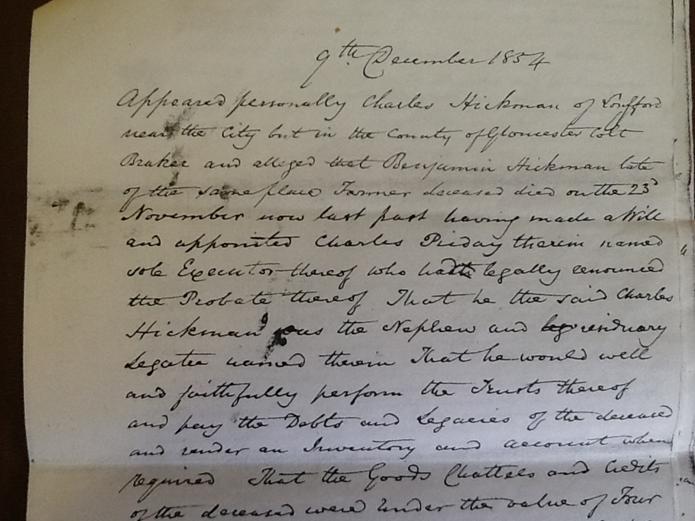 9th December 1854
Appeared personally Charles Hickman of Longford
near the City but in the County of Gloucester Colt
Braker and alleged that Benjamin Hickman late
of the same place Farmer deceased died on the 23d
November now last past having made a Will
and appointed Charles Priday therein named
sole Executor thereof who hath legally renounced
the Probate thereof That he the said Charles
Hickman was the Nephew and residuary
Legatee named therein That he would well
and faithfully perform the Trusts thereof
and pay the Debts and Legacies of the deceased
and render an Inventory and account when
required That the Goods Chattels and Credits
of the deceased were under the value of Four